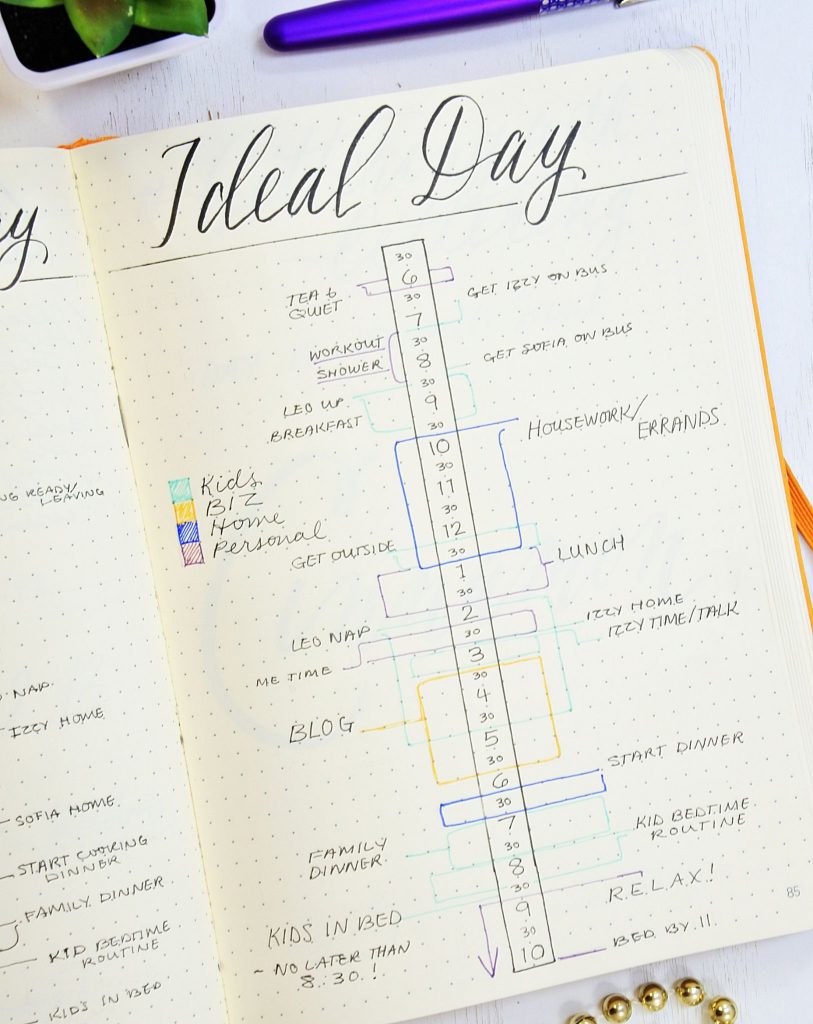 Ideal Day
30
6
TEA &
QUIET
30
GET IZZY ON BUS
7
WORKOUT
30
SHOWER
8
GET SOFIA ON BUS
30
LEO UP
9
BREAKFAST
30
HOUSEWORK/
ERRANDS
10
30
11
30
12
GET OUTSIDE
30
LUNCH
1
30
2
LEO NAP
30
IZZY HOME
IZZY TIME/TALK
ME TIME
3
30
4
BLOG
30
5
30
6
START DINNER
30
7
FAMILY
DINNER
30
KID BEDTIME
ROUTINE
8
30
R.E.L.A.X!
KIDS IN BED
9
~ NO LATER THAN
8:30!
30
10
BED BY 11.
Kids
BIZ
Home
Personal
85
READY/
LEAVING
NAP
IZZY HOME
SOFIA HOME
START COOKING
DINNER
FAMILY DINNER
KID BEDTIME
ROUTINE
KIDS IN BED